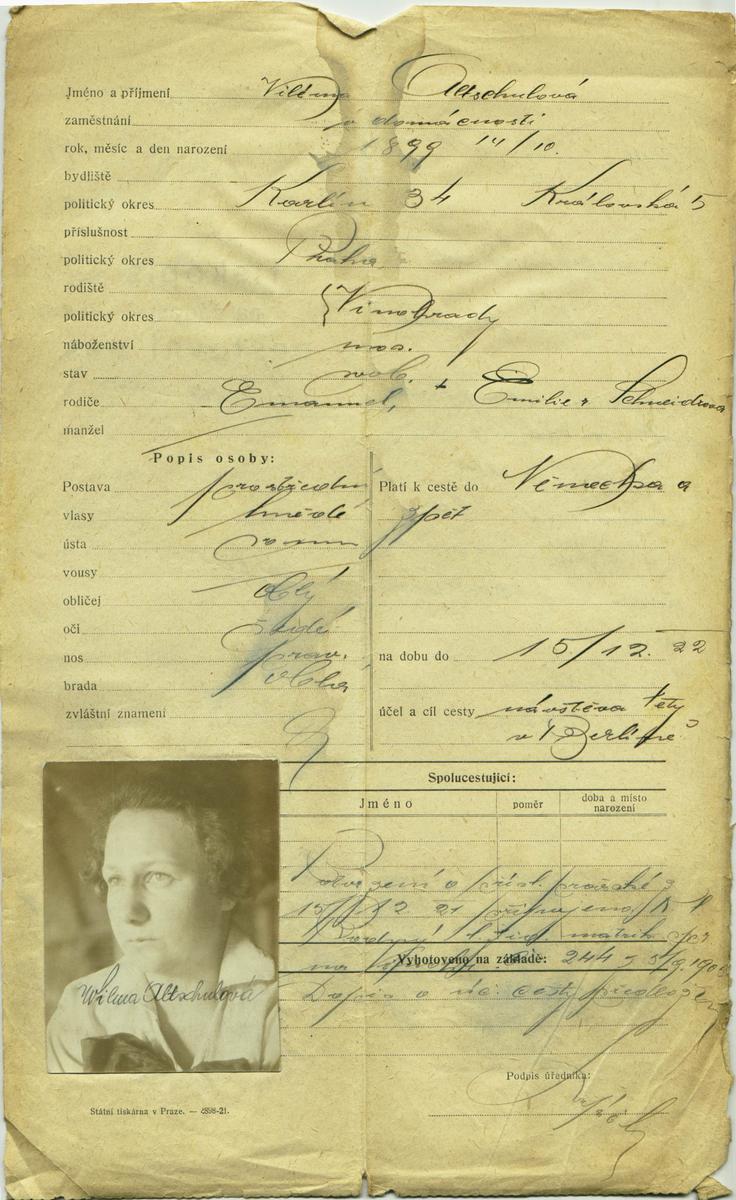 Jméno a příjmení Vilěma Altschulová
zaměstnání v domácnosti
rok, měsíc a den narození 1899 14/10.
bydliště
politický okres Karlín 34 Královská 5
příslušnost
politický okres Praha
rodiště
politický okres Vinohrady
náboženství mos.
stav svob.
rodiče Emanuel, + Emilie r Schneidrová
manžel
Popis osoby:
Postava prostřední
vlasy hnědé
ústa
vousy
obličej oblý
oči šedé
nos prav.
brada oblá
zvláštní znamení
Platí k cestě do Německa a
zpět
na dobu do 15/12. 22
účel a cíl cesty návštěva tety
v Berlíně
Spolucestující:
Jméno poměr doba a místo
narození
Potvrzení o přísl. pražské z
15/12. 21
matrik
Vyhotoveno na základě: 244 5/9.190
Dopis o úč. cesty předložen
Wilma Altschulová
Podpis úředníka:
Státní tiskárna v Praze. — 4898-21.